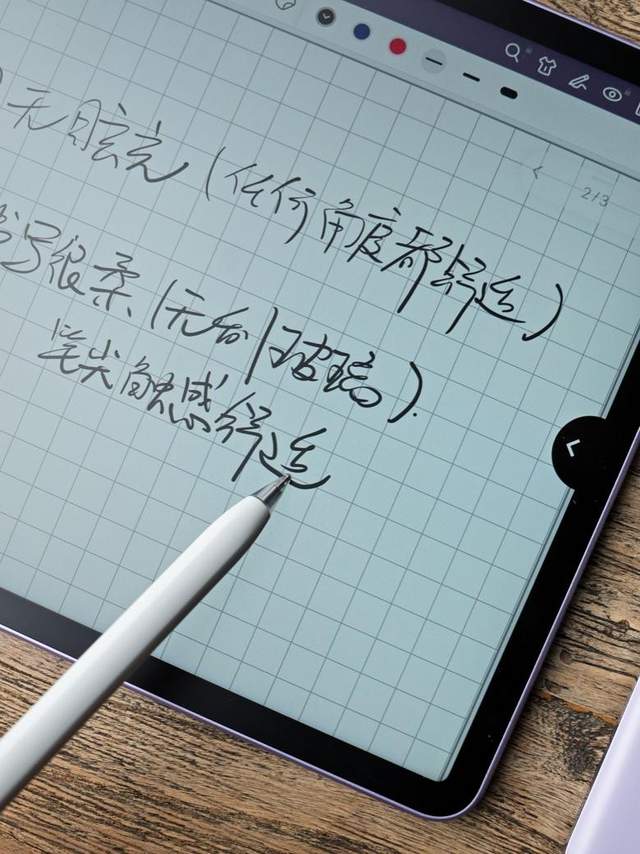 2/3
无眩光(任何角度都舒适)
书写很柔(无 玻璃).
笔尖触感舒适